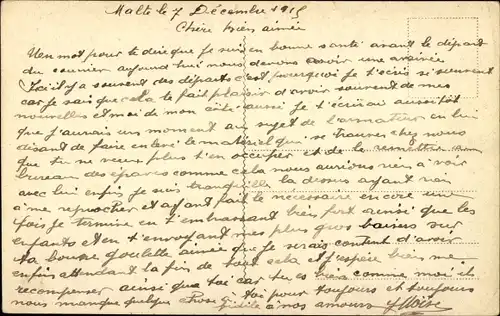 Malte le 7 Décembre 1915
Chère bien aimée
Un mot pour te dire que je suis en bonne santé avant le départ
du courrier aujourd hui nous devons avoir une arrivée
Ici il y a souvent des départs c'est pourquoi je t'écris si souvent
car je sais que cela te fait plaisir d'avoir souvent de mes
nouvelles et moi de mon côté aussi je t'écrirai aussitôt
que j'aurais un moment au sujet de l'armateur en lui
disant de faire enlevé le matériel qui se trouve chez nous
que tu ne veux plus t'en occuper et de le remettre au
bureau des épaves comme cela nous aurions rien à voir
avec lui enfin je suis tranquille la dessus ayant rien
a me reprocher et ayant fait le nécessaire encore une
fois je termine en t'embrassant bien fort ainsi que les
enfants et en t'envoyant mes plus gros baisers sur
ta bouche aimée que je serais content d'avoir
enfin attendant la fin de tout cela et j'espère bien me
recompenser ainsi que toi car tu es bien comme moi il
nous manque quelque chose à toi pour toujours et toujours
à nos amours